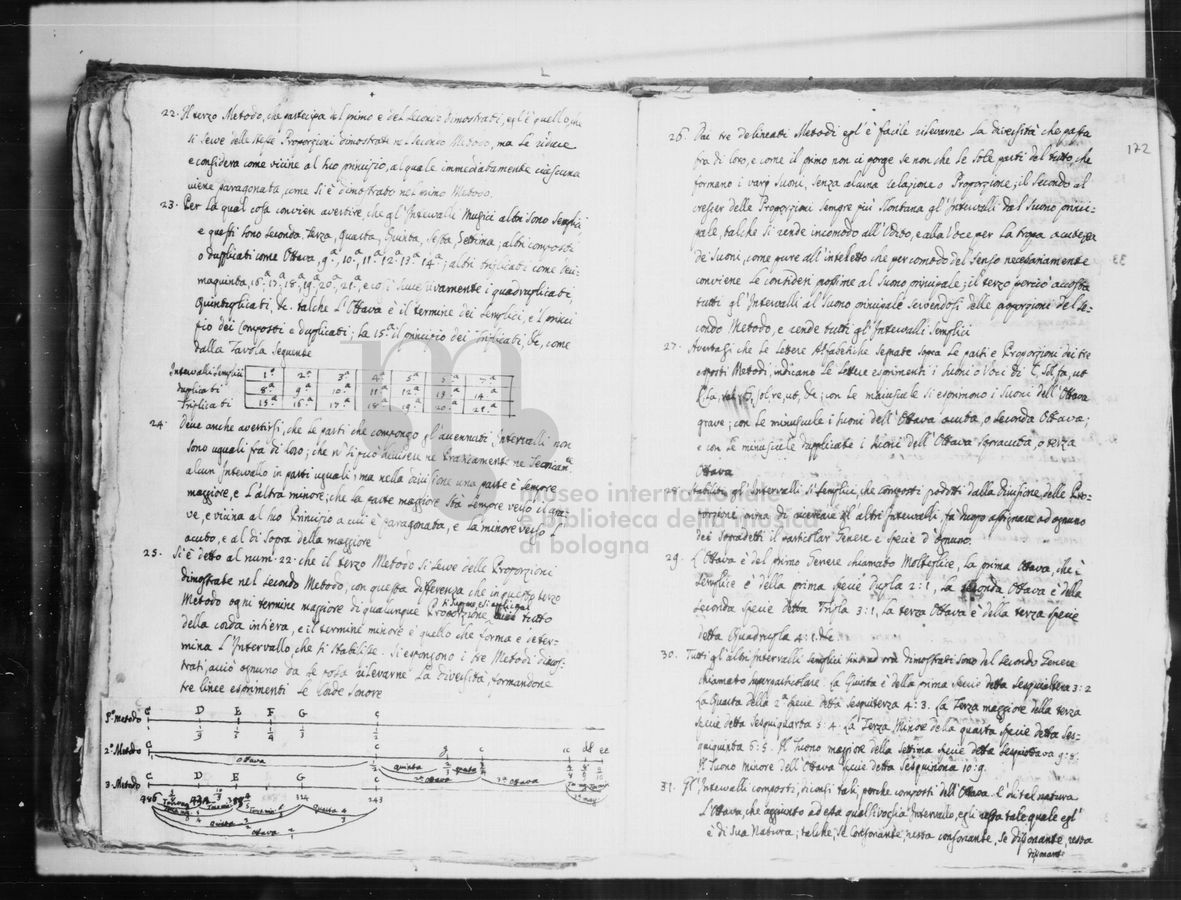 22. Il terzo Metodo, che partecipa del primo e del secondo dimostrati, egl'è quello, che
si serve delle stesse Proporzioni dimostrate nel secondo Metodo, ma le riduce
e considera come vicine al suo principio, al quale immediatamente ciascuna
viene paragonata, come si è dimostrato nel primo Metodo.
23. Per la qual cosa convien avertire, che gl'Intervalli Musici altri sono semplici
e questi sono seconda, Terza, Quarta, Quinta, Sesta, Settima; altri composti
o dupplicati come Ottava, 9.a 10.a 11.a 12.a 13.a 14.a; altri triplicati come deci=
maquinta, 16.a 17.a 18.a 19.a 20.a 21.a, e così successivamente i quadruplicati,
Quintuplicati, &c. talche l'Ottava è il termine dei semplici, e l'princi
pio dei Composti e duplicati; la 15.a il principio dei Triplicati, &c, come
dalla Tavola seguente
Intervalli Semplici 1.a 2.a 3.a 4.a 5.a 6.a 7.a
duplicati 8.a 9.a 10.a 11.a 12.a 13.a 14.a
triplicati 15.a 16.a 17.a 18.a 19.a 20.a 21.a
24. Deve anche avertirsi, che le parti che compongo gl'accennati Intervalli non
sono uguali fra di loro; che non si può dividere ne Praticamente ne Teoricam.te
alcun Intervallo in parti uguali; ma nella divisione una parte è sempre
maggiore, e l'altra minore; che la parte maggiore stà sempre verso il gra=
ve, e vicina al suo Principio a cui è paragonata, e la minore verso l'
acuto, e al di sopra della maggiore
25. Si è detto al num: 22: che il terzo Metodo si serve delle Proporzioni
dimostrate nel secondo Metodo, con questa differenza che in questo terzo
Metodo ogni termine maggiore di qualunque Proporzione si suppone ed applica al tutto
della corda intiera, e il termine minore è quello che forma e deter=
mina l'Intervallo, che si stabilisce. Si espongono i tre Metodi dimos=
trati, acciò ognuno da se possa rilevarne la diversità, formandone
tre linee esprimenti le Corde sonore
P.o Metodo C D E F G c
1/9 1/5 1/4 1/3 1/2
2.o Metodo C c g c e dd ee
Ottava quinta quarta 2.a Ottava 3.a Ottava
3. Metodo C D E G c
486 324 243
Ottava Quinta
172
26. Dai tre delineati Metodi egl'è facile rilevarne la diversità che passa
fra di loro, e come il primo non ci porge se non che le sole parti del tutto, che
formano i varj suoni, senza alcuna relazione o Proporzione; il secondo al
crescer delle Proporzioni sempre più slontana gl'Intervalli dal suono princi=
pale, talche si rende incomodo all'Udito, e alla Voce per la troppa acutezza
de suoni, come pure all'intelletto che per comodo del senso necessariamente
conviene le consideri prossime al suono principale; il terzo perciò accosta
tutti gl'Intervalli al suono principale servendosi delle proporzioni del se=
condo Metodo, e rende tutti gl'Intervalli semplici
27. Avertasi che le lettere Alfabetiche segnate sopra le parti e Proporzioni dei tre
esposti Metodi, indicano le lettere esprimenti i suoni o voci di C sol fa, ut
sol, re, ut, &c; con le maiuscule si esprimono i suoni dell'Ottava
grave; con le minuscule i suoni dell'Ottava acuta, o seconda Ottava;
e con le minuscule dupplicate i suoni dell'Ottava sopracuta, o terza
Ottava
28. Stabiliti gl'Intervalli sì semplici, che composti prodotti dalla divisione delle Pro=
porzione, prima di ricercare gl'altri Intervalli, fa duopo assegnare ad ognuno
dei sopradetti il particolar Genere e specie d'ognuno.
29. L'Ottava è del primo Genere chiamato Molteplice, la prima Ottava, che è
semplice è della prima specie Dupla 2:1, la seconda Ottava è della
seconda specie detta Tripla 3:1, la terza Ottava è della terza specie
detta Quadrupla 4:1. &c.
30. Tutti gl'altri Intervalli semplici sin ad ora dimostrati sono del secondo Genere
chiamato superparticolare. La Quinta è della prima specie detta sesquialtera 3:2
La Quarta della 2.a specie detta sesquiterza 4:3. La Terza maggiore della terza
specie detta sesquiquarta 5:4. La Terza Minore della quarta specie detta ses=
quiquinta 6:5. Il Tuono maggiore della settima specie detta sesquiottava 9:8.
Il Tuono minore dell'Ottava specie detta sesquinona 10:9.
31. Gl'Intervalli composti, diconsi tali, perche composti dell'Ottava. È di tal natura
l'Ottava, che aggiunto ad essa qualsivoglia Intervallo, egli resta tale quale egl'
è di sua Natura; talche, se consonante, resta consonante, se dissonante, resta
dissonante
museo internazionale
e biblioteca della musica
di bologna